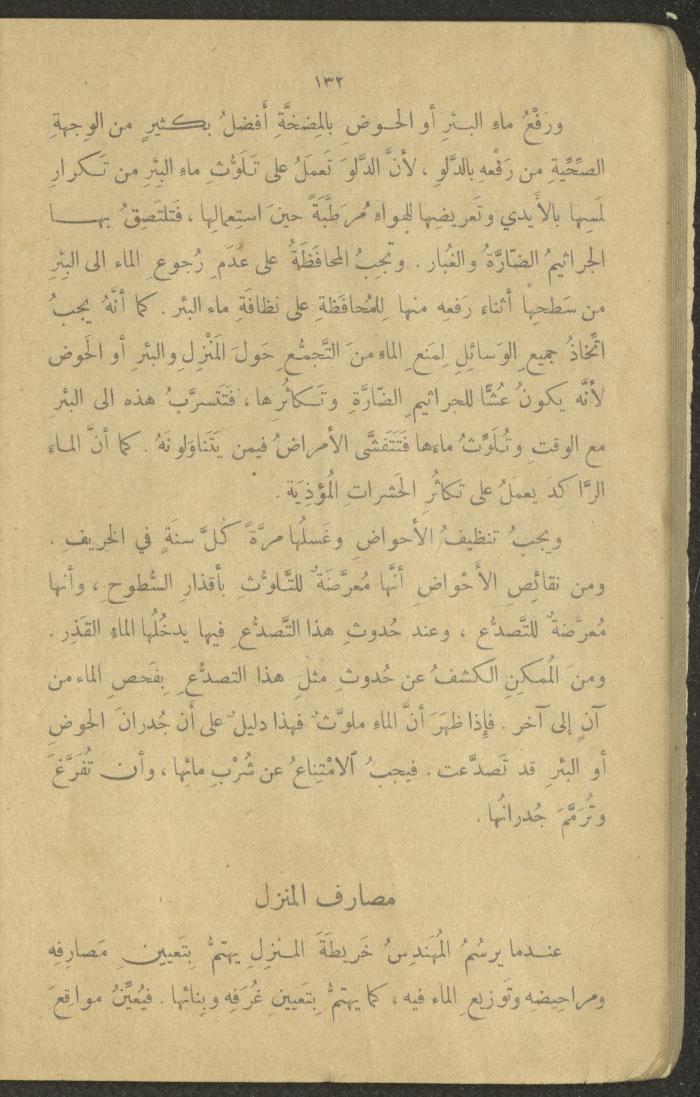 ١٣٢
ورَفْعُ ماءِ البــئرِ أو الحــوضِ بالمِضخَّةِ أَفضلُ بكــثيرٍ من الوِجهةِ
الصِّحِّيةِ من رَفْعهِ بالدَّلوِ ، لأنَّ الدَّلوَ تَعملُ على تَلَوُّثِ ماءِ البئرِ من تَـكرارِ
لَمسِها بالأَيدي وتَعريضِها للهواءِ مُرطَّبَةً حينَ استِعمالِها ، فَتلتَصِقُ بهــا
الجراثيمُ الضّارَّةُ والغُبار . وتجبُ المحافَظَةُ على عَدَمِ رُجوعِ الماء الى البِئرِ
من سَطحِها أثناءَ رَفعِه منها لِلمُحافَظةِ على نظافَةِ ماء البئر . كما أنَّهُ يجبُ
اتِّخاذُ جميعِ الوَسائلِ لِمنعِ الماءِ منَ التَّجمُّعِ حَولَ المَنْزِلِ والبئرِ أو الحَوض
لأنَّه يكونُ عُشًّا للجراثيمِ الضّارَّةِ وتَـكاثُرِها ، فَتَتسرَّبُ هذه الى البئرِ
مع الوقتِ وتُلَوِّثُ ماءها فَتَتَفَشَّى الأمراضُ فيمن يَتَناوَلونَهُ . كما أنَّ المـاءَ
الرَّاكدَ يعملُ على تكاثُرِ الحَشراتِ المُؤذِيَة .
ويجبُ تنظيفُ الأحواضِ وغَسلُها مرَّةً كلَّ سنَةٍ في الخريفِ .
ومن نقائِصِ الأَحْواضِ أنَّها مُعرَّضَةٌ للتَّلوُّثِ بأقذارِ السُّطوحِ ، وأنها
مُعرَّضةٌ للتَّصدُّعِ ، وعند حُدوثِ هذا التَّصدُّعِ فيها يدخُلُها الماءُ القَذِر .
ومنَ المُمكنِ الكشفُ عن حُدوثِ مثلِ هذا التصدُّعِ بفَحصِ الماء من
آنٍ إلى آخر . فإِذا ظهَرَ أنَّ الماءَ ملوَّثٌ فهذا دليلٌ على أَن جُدرانَ الحوضِ
أو البئرِ قد تَصدَّعت . فيجبُ الامْتِناعُ عن شُرْبِ مائِها ، وأن تُفَرَّغَ
وتُرَمَّمَ جُدرانُها .
مصارف المنزل
عنــدما يرسُمُ المُهَندِسُ خَريطَةَ المــنزِلِ يهتمُّ بِتَعيينِ مَصارِفِه
ومراحيضِه وتَوزيعِ الماء فيه ، كما يهتمُّ بِتَعيينِ غُرَفِه وبِنائها . فيُعيِّنُ مواقِعَ